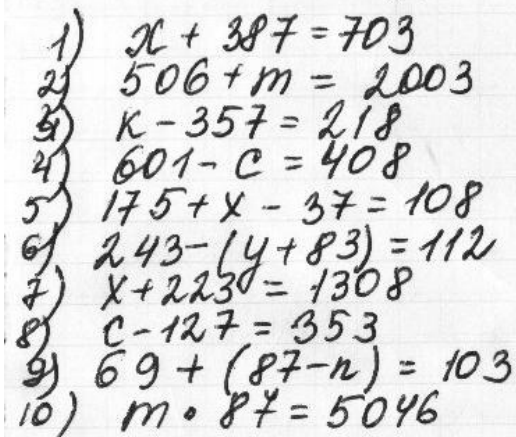 1) x + 387 = 703
2) 506 + m = 2003
3) к - 357 = 218
4) 601 - c = 408
5) 175 + x - 37 = 108
6) 243 - (y + 83) = 112
7) x + 223 = 1308
8) c - 127 = 353
9) 69 + (87 - n) = 103
10) m • 87 = 5046